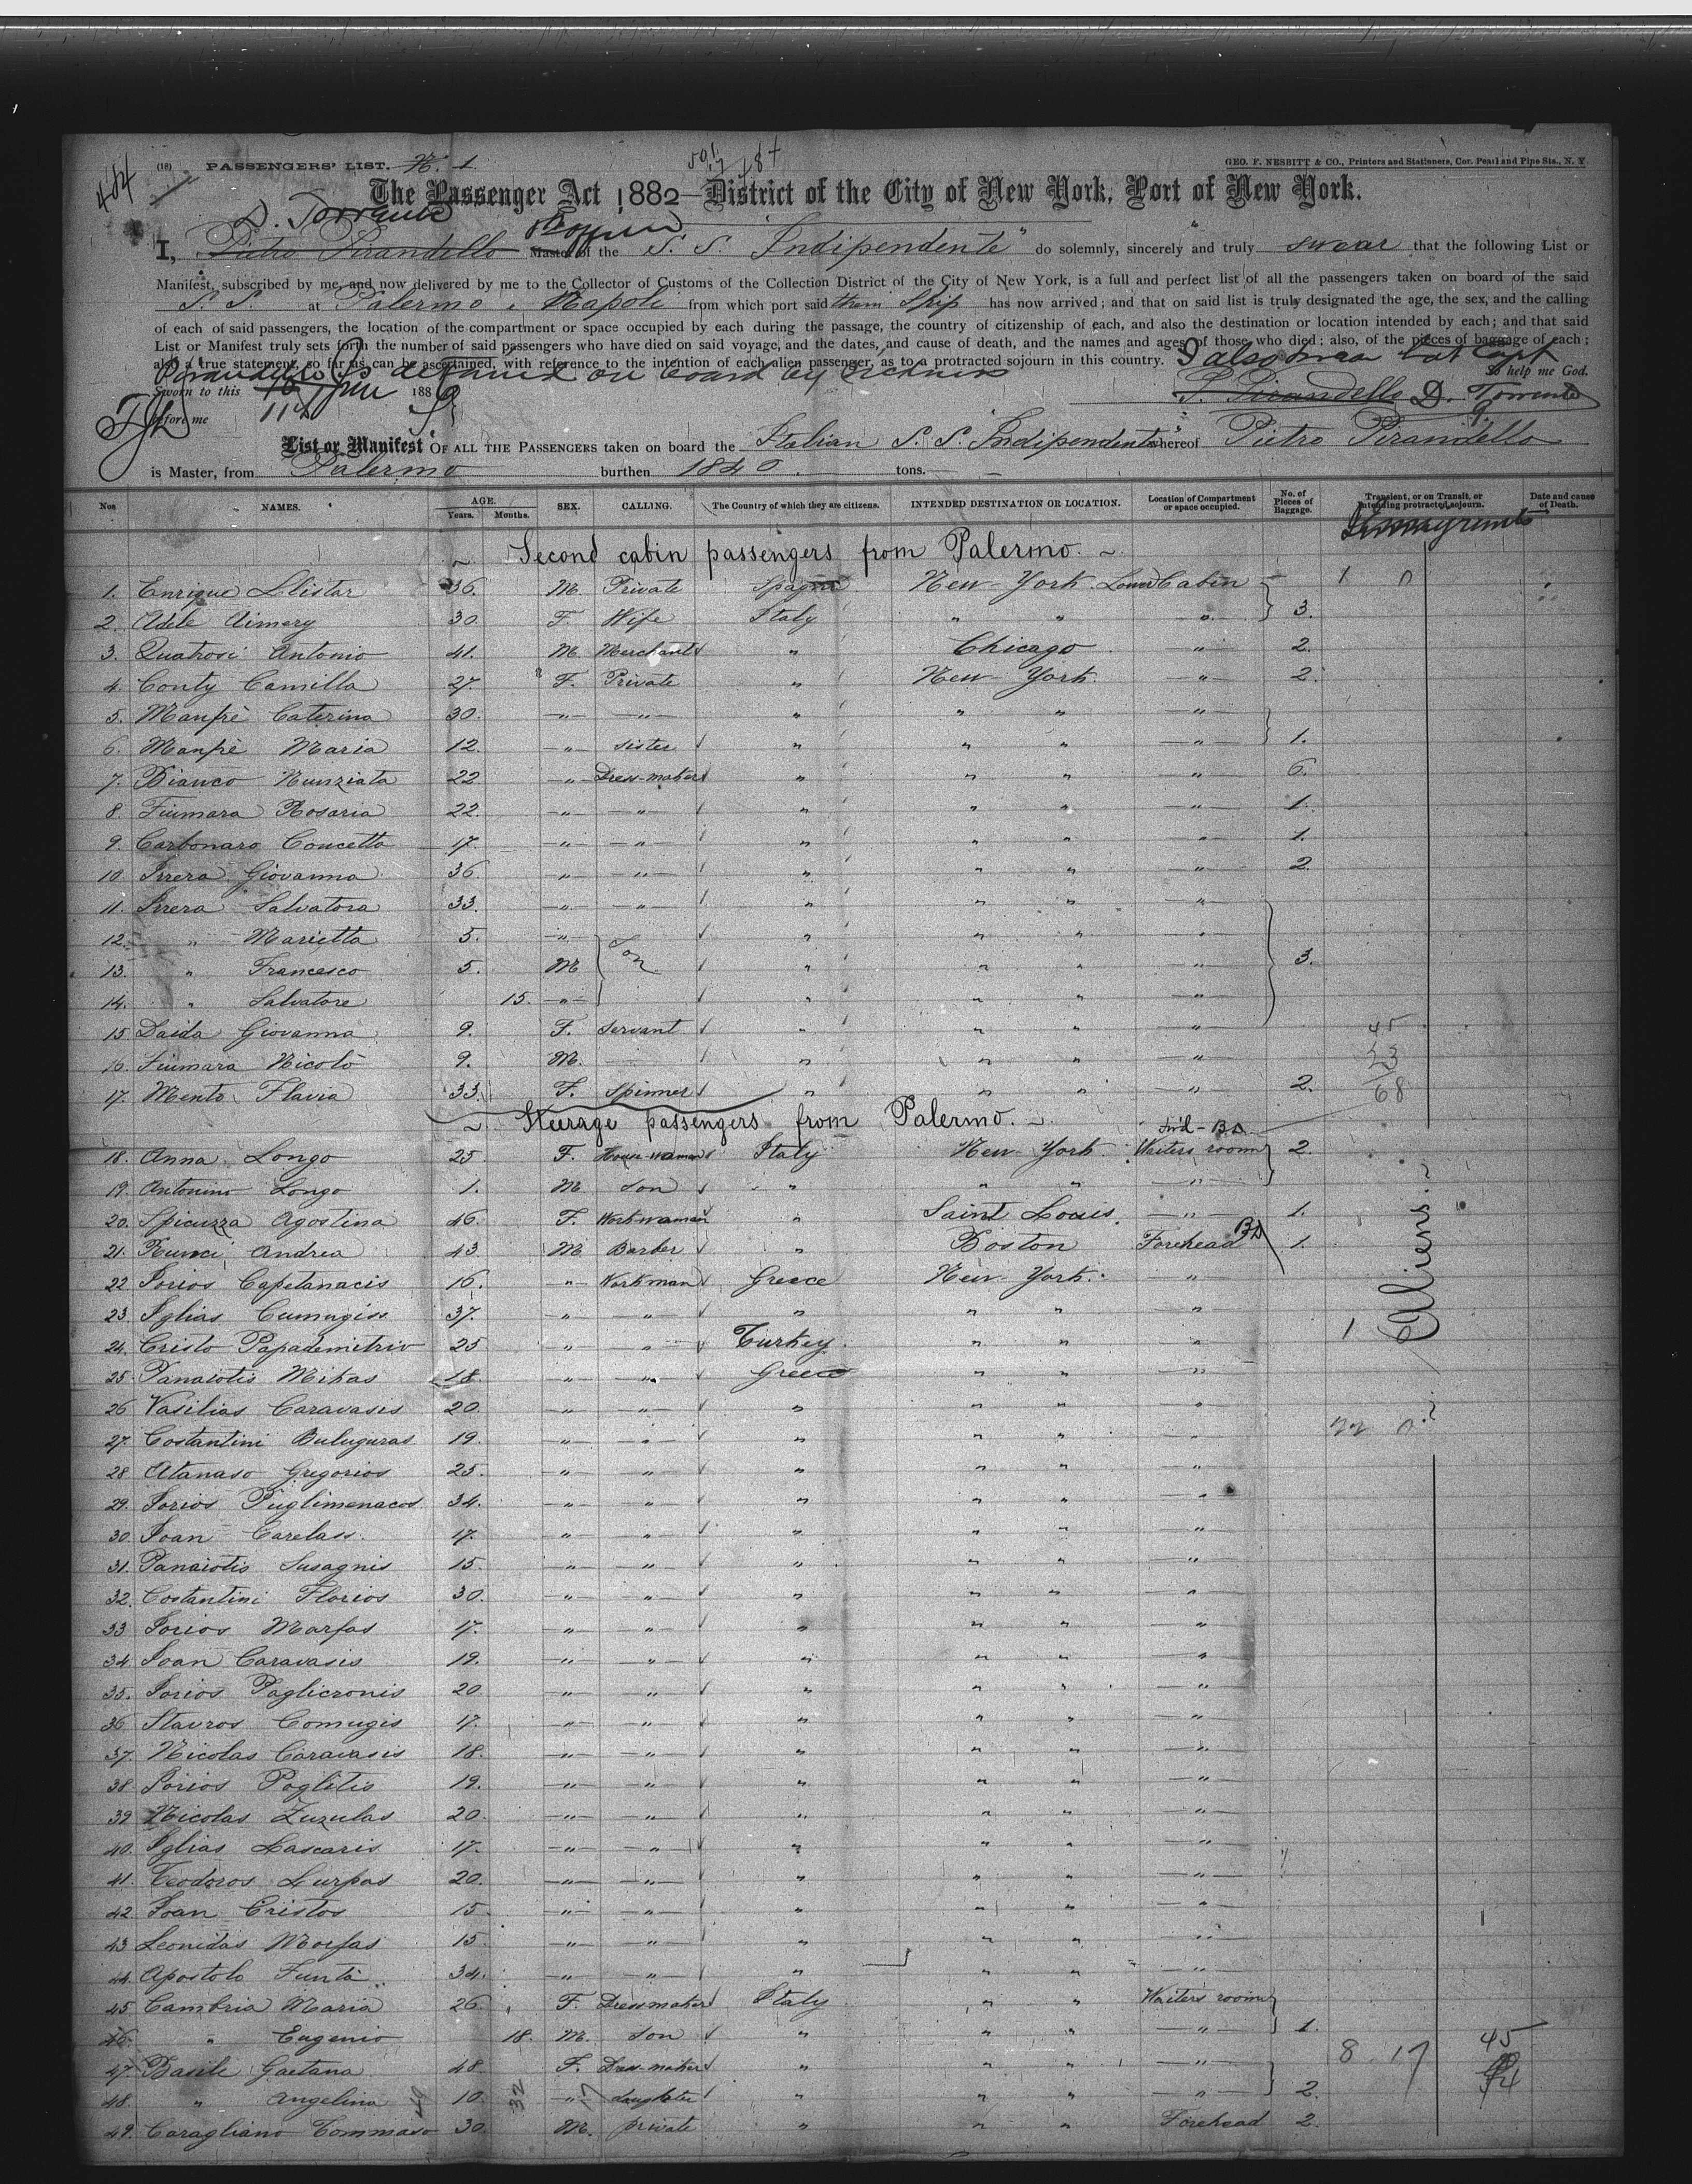 484
(16) PASSENGERS' LIST. N. 1
GEO. F. NESBITT & CO., Printers and Stationers, Cor. Pearl and Pine Sts., N. Y.
The Passenger Act 1882—District of the City of New York, Port of New York.
D. Torrente
I, Pietro Pirandello Master of the S. S. Indipendente" do solemnly, sincerely and truly swear that the following List or
Manifest, subscribed by me, and now delivered by me to the Collector of Customs of the Collection District of the City of New York, is a full and perfect list of all the passengers taken on board of the said
S. S. at Palermo e Napoli from which port said Ship has now arrived; and that on said list is truly designated the age, the sex, and the calling
of each of said passengers, the location of the compartment or space occupied by each during the passage, the country of citizenship of each, and also the destination or location intended by each; and that said
List or Manifest truly sets forth the number of said passengers who have died on said voyage, and the dates, and cause of death, and the names and ages of those who died; also, of the pieces of baggage of each;
also a true statement, so far as can be ascertained, with reference to the intention of each alien passenger, as to a protracted sojourn in this country. I also swear that Capt
Pirandello is detained on board by sickness So help me God.
Sworn to this 1886
before me P. Pirandello D. Torrente
List or Manifest OF ALL THE PASSENGERS taken on board the Italian S. S. Indipendente" whereof Pietro Pirandello
is Master, from Palermo burthen 1840 tons.
Nos NAMES. AGE. Years. Months. SEX. CALLING. The Country of which they are citizens. INTENDED DESTINATION OR LOCATION. Location of Compartment or space occupied. No. of Pieces of Baggage. Transient, or on Transit, or intending protracted sojourn. Date and cause of Death.
~ Second cabin passengers from Palermo. ~
1. Enrique Llistar 36. M. Private Spagna New-York Cabin 1 0
2. Adele Aimery 30. F. Wife Italy " " " 3.
3. Quatrosi Antonio 41. M. Merchant " Chicago " 2.
4. Conty Camilla 27. F. Private " New-York. " 2.
5. Manfrè Caterina 30. " " " " " "
6. Manfrè Maria 12. " sister " " " " 1.
7. Bianco Nunziata 22 " Dress-maker " " " " 6.
8. Fiumara Rosaria 22. " " " " " " 1.
9. Carbonaro Concetta 17. " " " " " " 1.
10. Irrera Giovanna 36. " " " " " " 2.
11. Irrera Salvatora 33. " " " " " "
12. " Marietta 5. " " " " "
13. " Francesco 5. M " " " " 3.
14. " Salvatore 15. " " " " "
15 Daida Giovanna 9. F. Servant " " " "
16. Fiumara Nicolò 9. M. " " " "
17. Mento Flavia 33. F. Spinner " " " " 2.
45
23
68
~ Steerage passengers from Palermo. ~
18. Anna Longo 25 F. House-woman Italy New-York Waiters room 2.
19. Antonino Longo 1. M. Son " " " "
20. Spicuzza Agostina 46. F. Workwoman " Saint Louis. " 1.
21. Runci Andrea 43 M. Barber " Boston Forehead 1.
22 Iorios Capetanacis 16. " Workman Greece New-York. "
23. Iglias Cumugiss 37. " " " " " "
24. Cristo Papademitriv 25 " " Turkey. " " " 1
25. Panaiotis Mikas 18. " " Greece " " "
26 Vasilias Caravasis 20. " " " " " "
27. Costantini Buluguras 19. " " " " " " 22 0
28 Atanaso Gregorios 25. " " " " " "
29. Iorios Puglimenacos 34. " " " " " "
30. Ioan Carelass. 17. " " " " " "
31. Panaiotis Susagnis 15. " " " " " "
32. Costantini Florios 30. " " " " " "
33 Iorios Marfas 17. " " " " " "
34. Ioan Caravasis 19. " " " " " "
35. Iorios Paglicronis 20 " " " " " "
36 Stavros Comugis 17. " " " " " "
37. Nicolas Caravasis 18. " " " " " "
38. Iorios Poglitis 19. " " " " " "
39 Nicolas Zuzulas 20. " " " " " "
40. Iglias Lascaris 17. " " " " " "
41. Teodoros Lurpas 20. " " " " " "
42. Ioan Cristos 15. " " " " " "
43 Leonidas Morfas 15 " " " " " "
44. Apostolo Funtà 34. " " " " " "
45 Cambria Maria 26. F. Dressmaker Italy " " Waiters room
46. " Eugenio 18. M. Son " " " " 1.
47. Basile Gaetana 48. F. Dress-maker " " " " 8 17 45
48. " Angelina 10. " daughter " " " " 2.
49. Caragliano Tommaso 30. M. private " " " Forehead 2.
Aliens.